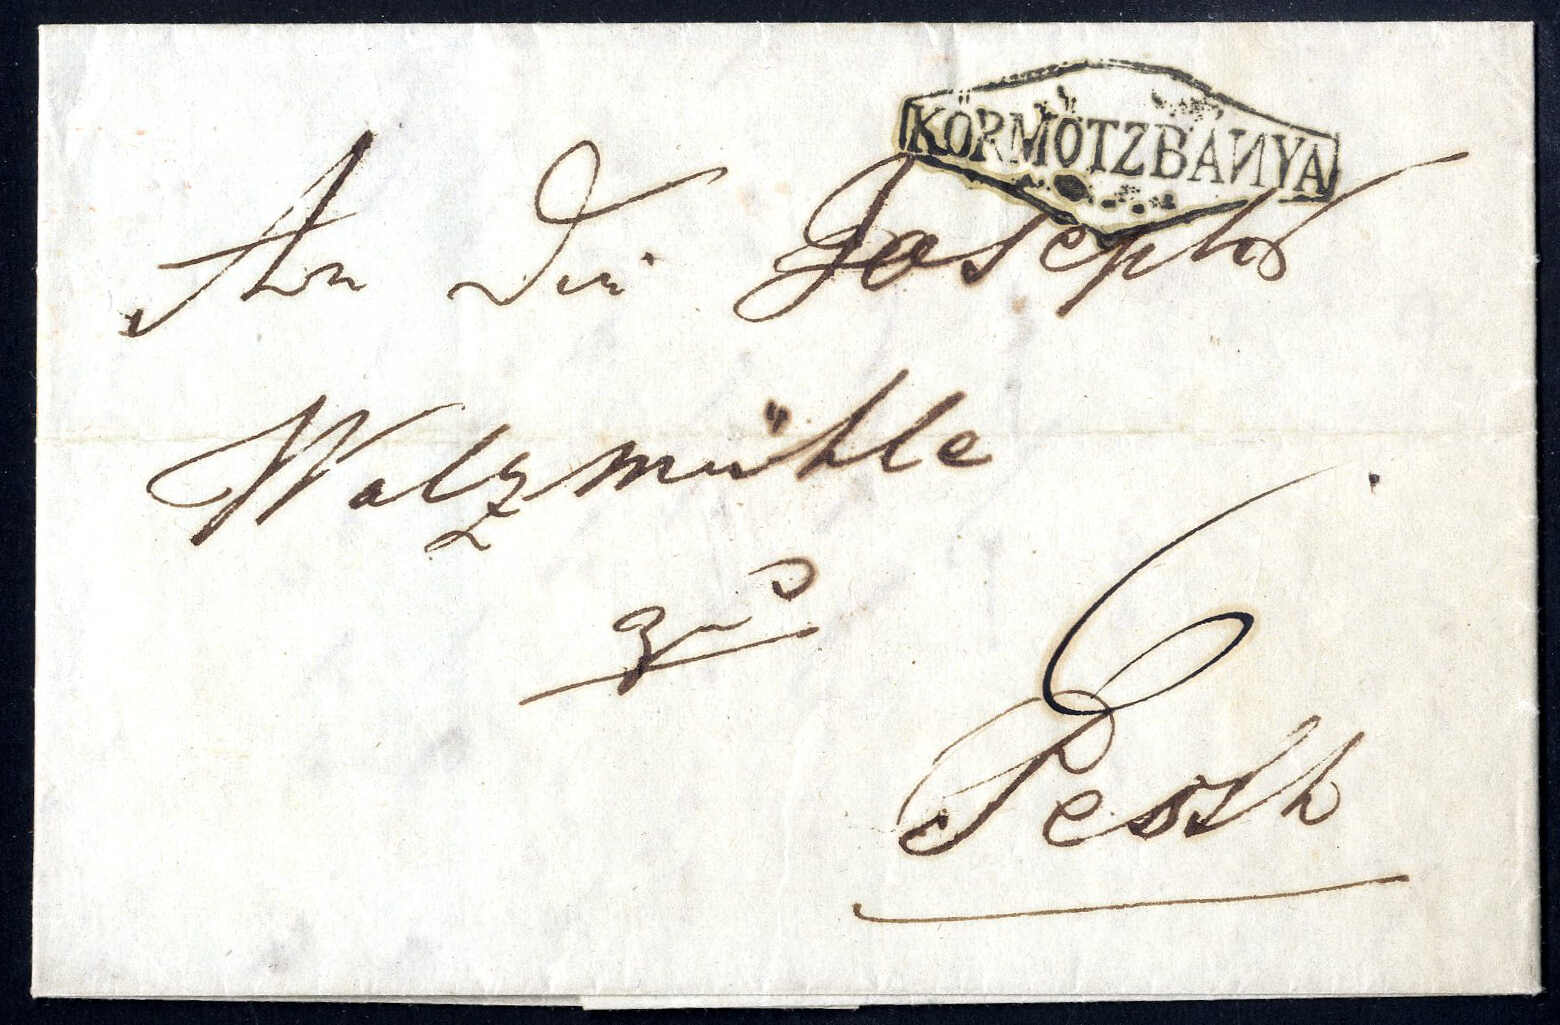 KÖRMÖTZBÁNYA
An die Joseph
Walzmühle
zu
6
Pesth